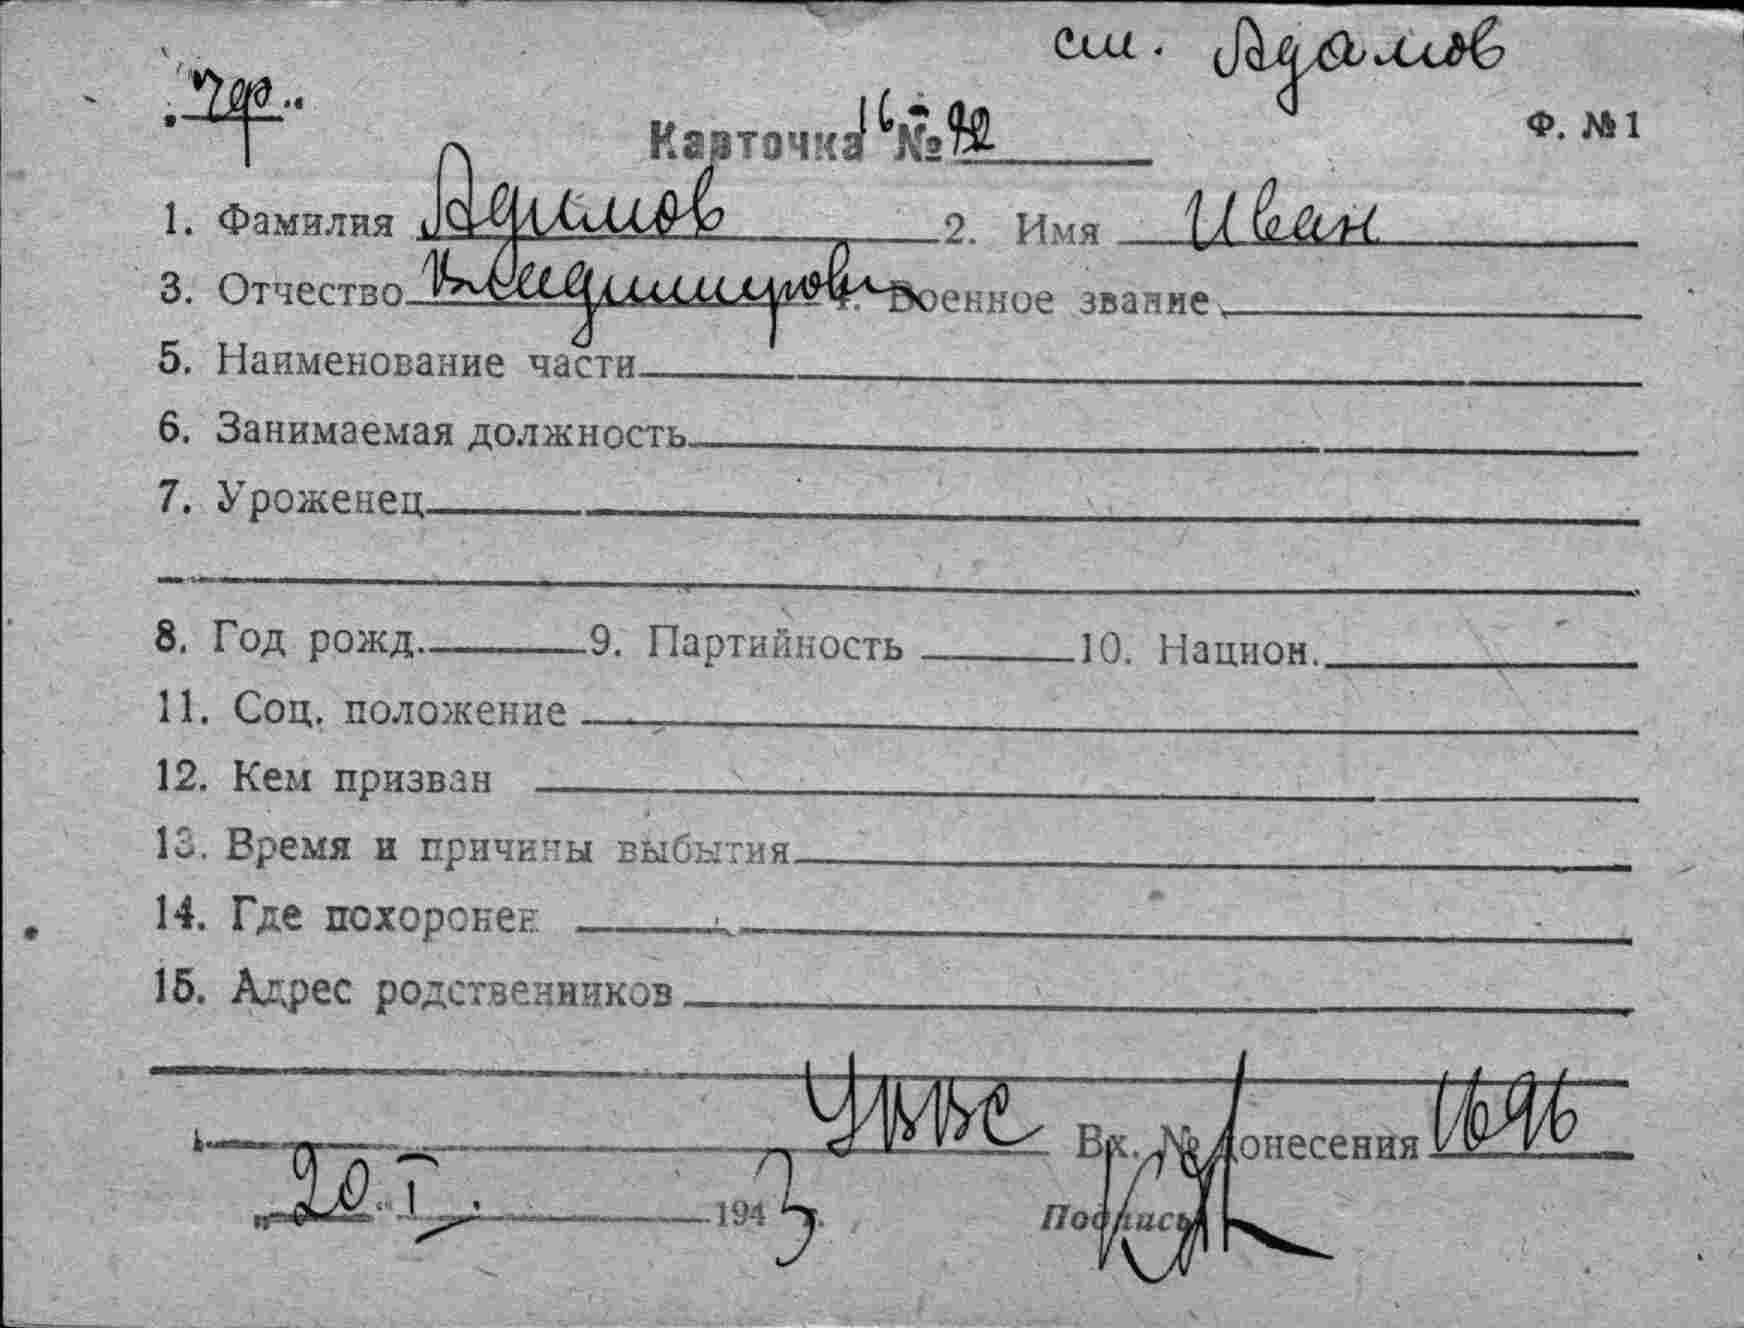 см. Адамов
Карточка № Ф. №1
1. Фамилия Адимов 2. Имя Иван
3. Отчество Владимирович 4. Военное звание
5. Наименование части
6. Занимаемая должность
7. Уроженец
8. Год рожд. 9. Партийность 10. Национ.
11. Соц. положение
12. Кем призван
13. Время и причины выбытия
14. Где похоронен
15. Адрес родственников
Вх. № донесения 1696
„20.“ I. 1943 г. Подпись